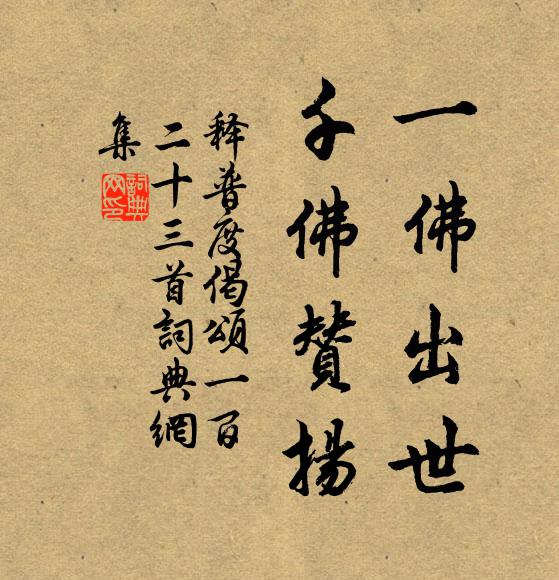 一佛出世
千佛贊揚
释普度偈頌一百
二十三首詞典網
集
詞典網印